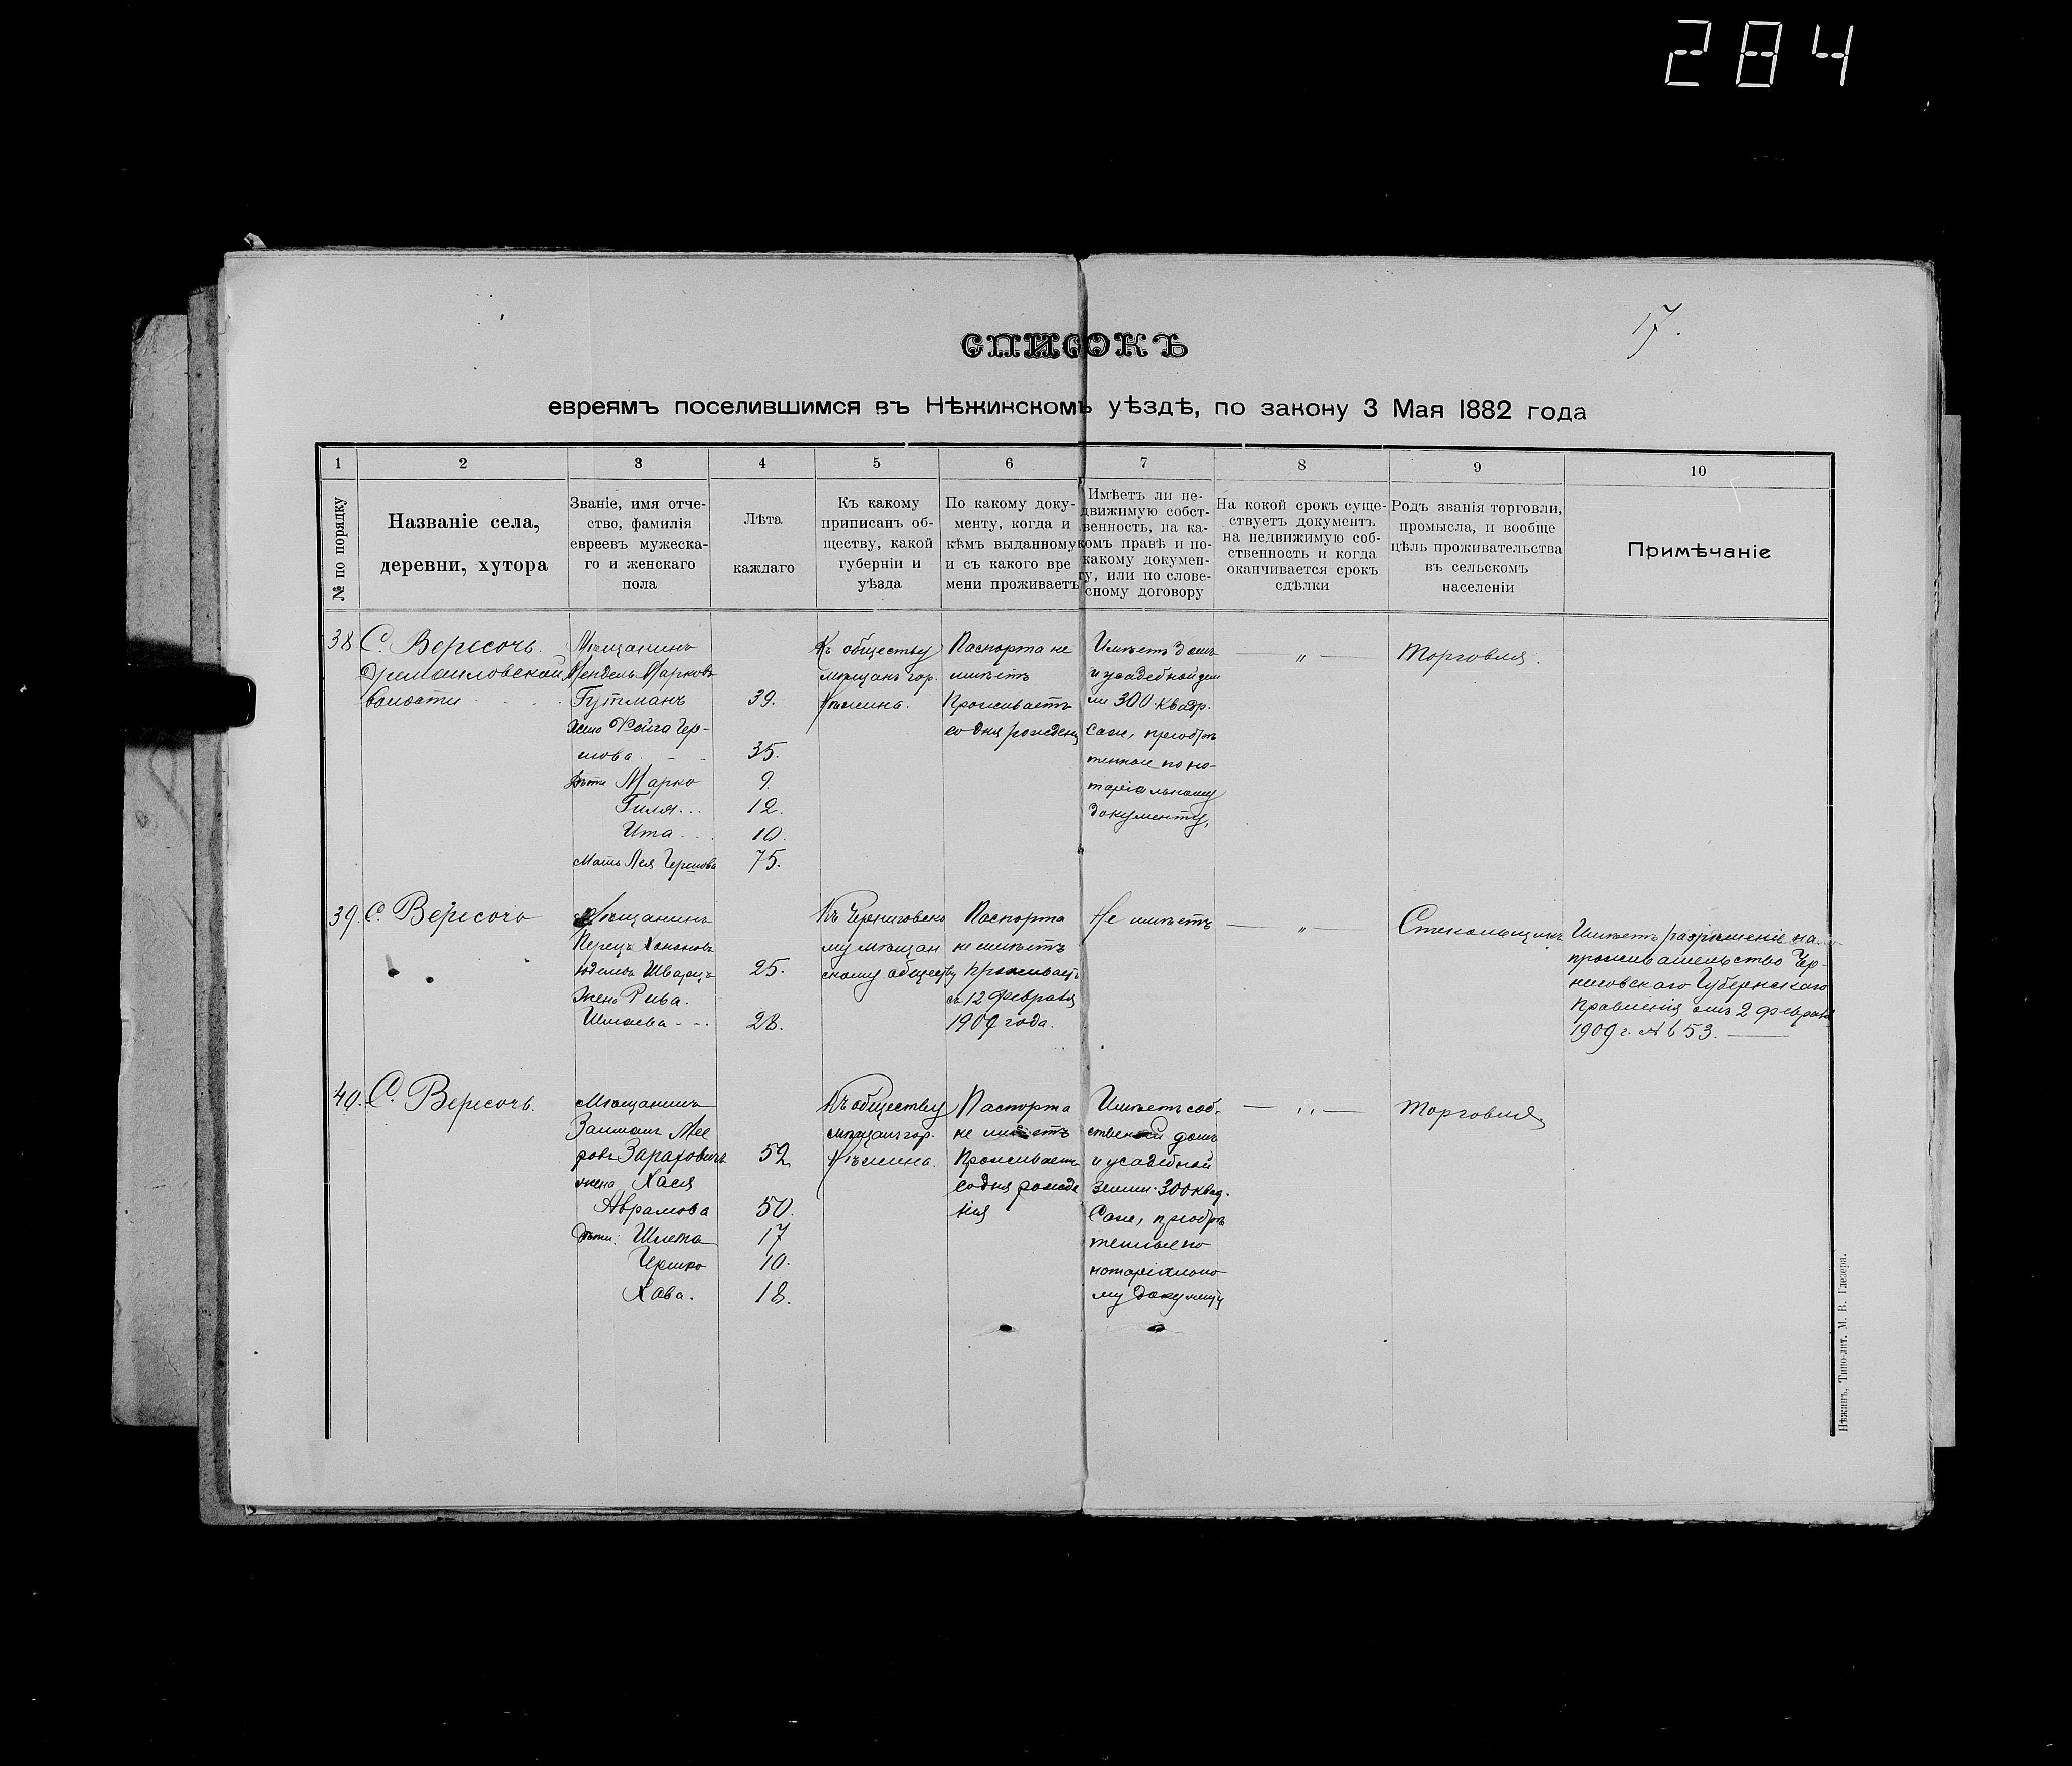 284
17.
СПИСОКЪ
евреямъ поселившимся въ Нѣжинскомъ уѣздѣ, по закону 3 Мая 1882 года
1
2
3
4
5
6
7
8
9
10
№ по порядку
Названіе села,
деревни, хутора
Званіе, имя отче-
ство, фамилія
евреевъ мужеска-
го и женскаго
пола
Лѣта
каждаго
Къ какому
приписанъ об-
ществу, какой
губерніи и
уѣзда
По какому доку-
менту, когда и
кѣмъ выданному
и съ какого вре
мени проживаетъ
Имѣетъ ли не-
движимую собст-
венность, на ка-
комъ правѣ и по-
какому докумен-
ту, или по слове-
сному договору
На кокой срокъ суще-
ствуетъ документъ
на недвижимую соб-
ственность и когда
оканчивается срокъ
сдѣлки
Родъ званія торговли,
промысла, и вообще
цѣль проживательства
въ сельскомъ
населеніи
Примѣчаніе
38
С. Вересочь.
Дремайловской
волости
Мѣщанинъ
Мендель Марковъ
Гутманъ
жена Фейга Гер-
шова
дѣти Марко
Гиля
Ита
мать Лея Гершова
39.
35.
9.
12.
10.
75.
Къ обществу
мѣщанъ гор.
Нѣжина.
Паспорта не
имѣетъ
Проживаетъ
со дня рожденія
Имѣетъ домъ
и усадебной зем
ли 300 квадр.
саж, пріобрѣ
тенные по но-
таріальному
документу,
— „ —
Торговля.
39.
С. Вересочь
Мѣщанинъ
Перецъ Хононовъ
Юделевъ Шварцъ
жена Рива.
Шмаева - -
25.
28.
Къ Черниговско
му мѣщан
скому обществу
Паспорта
не имѣетъ
проживаетъ
съ 12 февраля
1909 года.
Не имѣетъ
— „ —
Стекольщикъ
Имѣетъ разрѣшеніе на
проживательство Чер-
ниговскаго Губернскаго
Правленія отъ 2 февраля
1909 г. № 653. —
40.
С. Вересочь.
Мѣщанинъ
Залманъ Мее
ровъ Зараховичъ
жена Хася
Абрамова
дѣти: Шлема
Гершко
Хава.
52
50.
17
10.
18.
Къ обществу
мѣщанъ гор.
Нѣжина.
Паспорта
не имѣетъ
Проживаетъ
со дня рожде
нія
Имѣетъ соб.
ственный домъ
и усадебной
земли 300 квад.
саж, пріобрѣ
тенные по
нотаріально
му документу
— „ —
Торговля
Нѣжинъ, Типо-лит. М. В. Глезера.